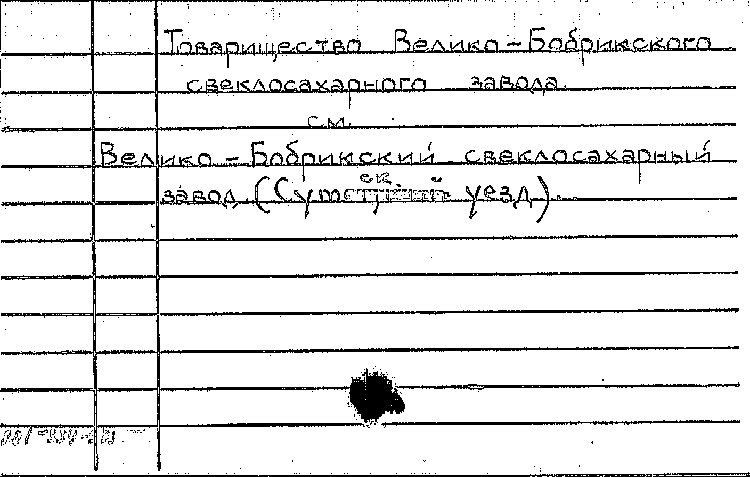 Товарищество Велико-Бобрикского
свеклосахарного завода.
см.
Велико-Бобрикский свеклосахарный
завод. уезд).